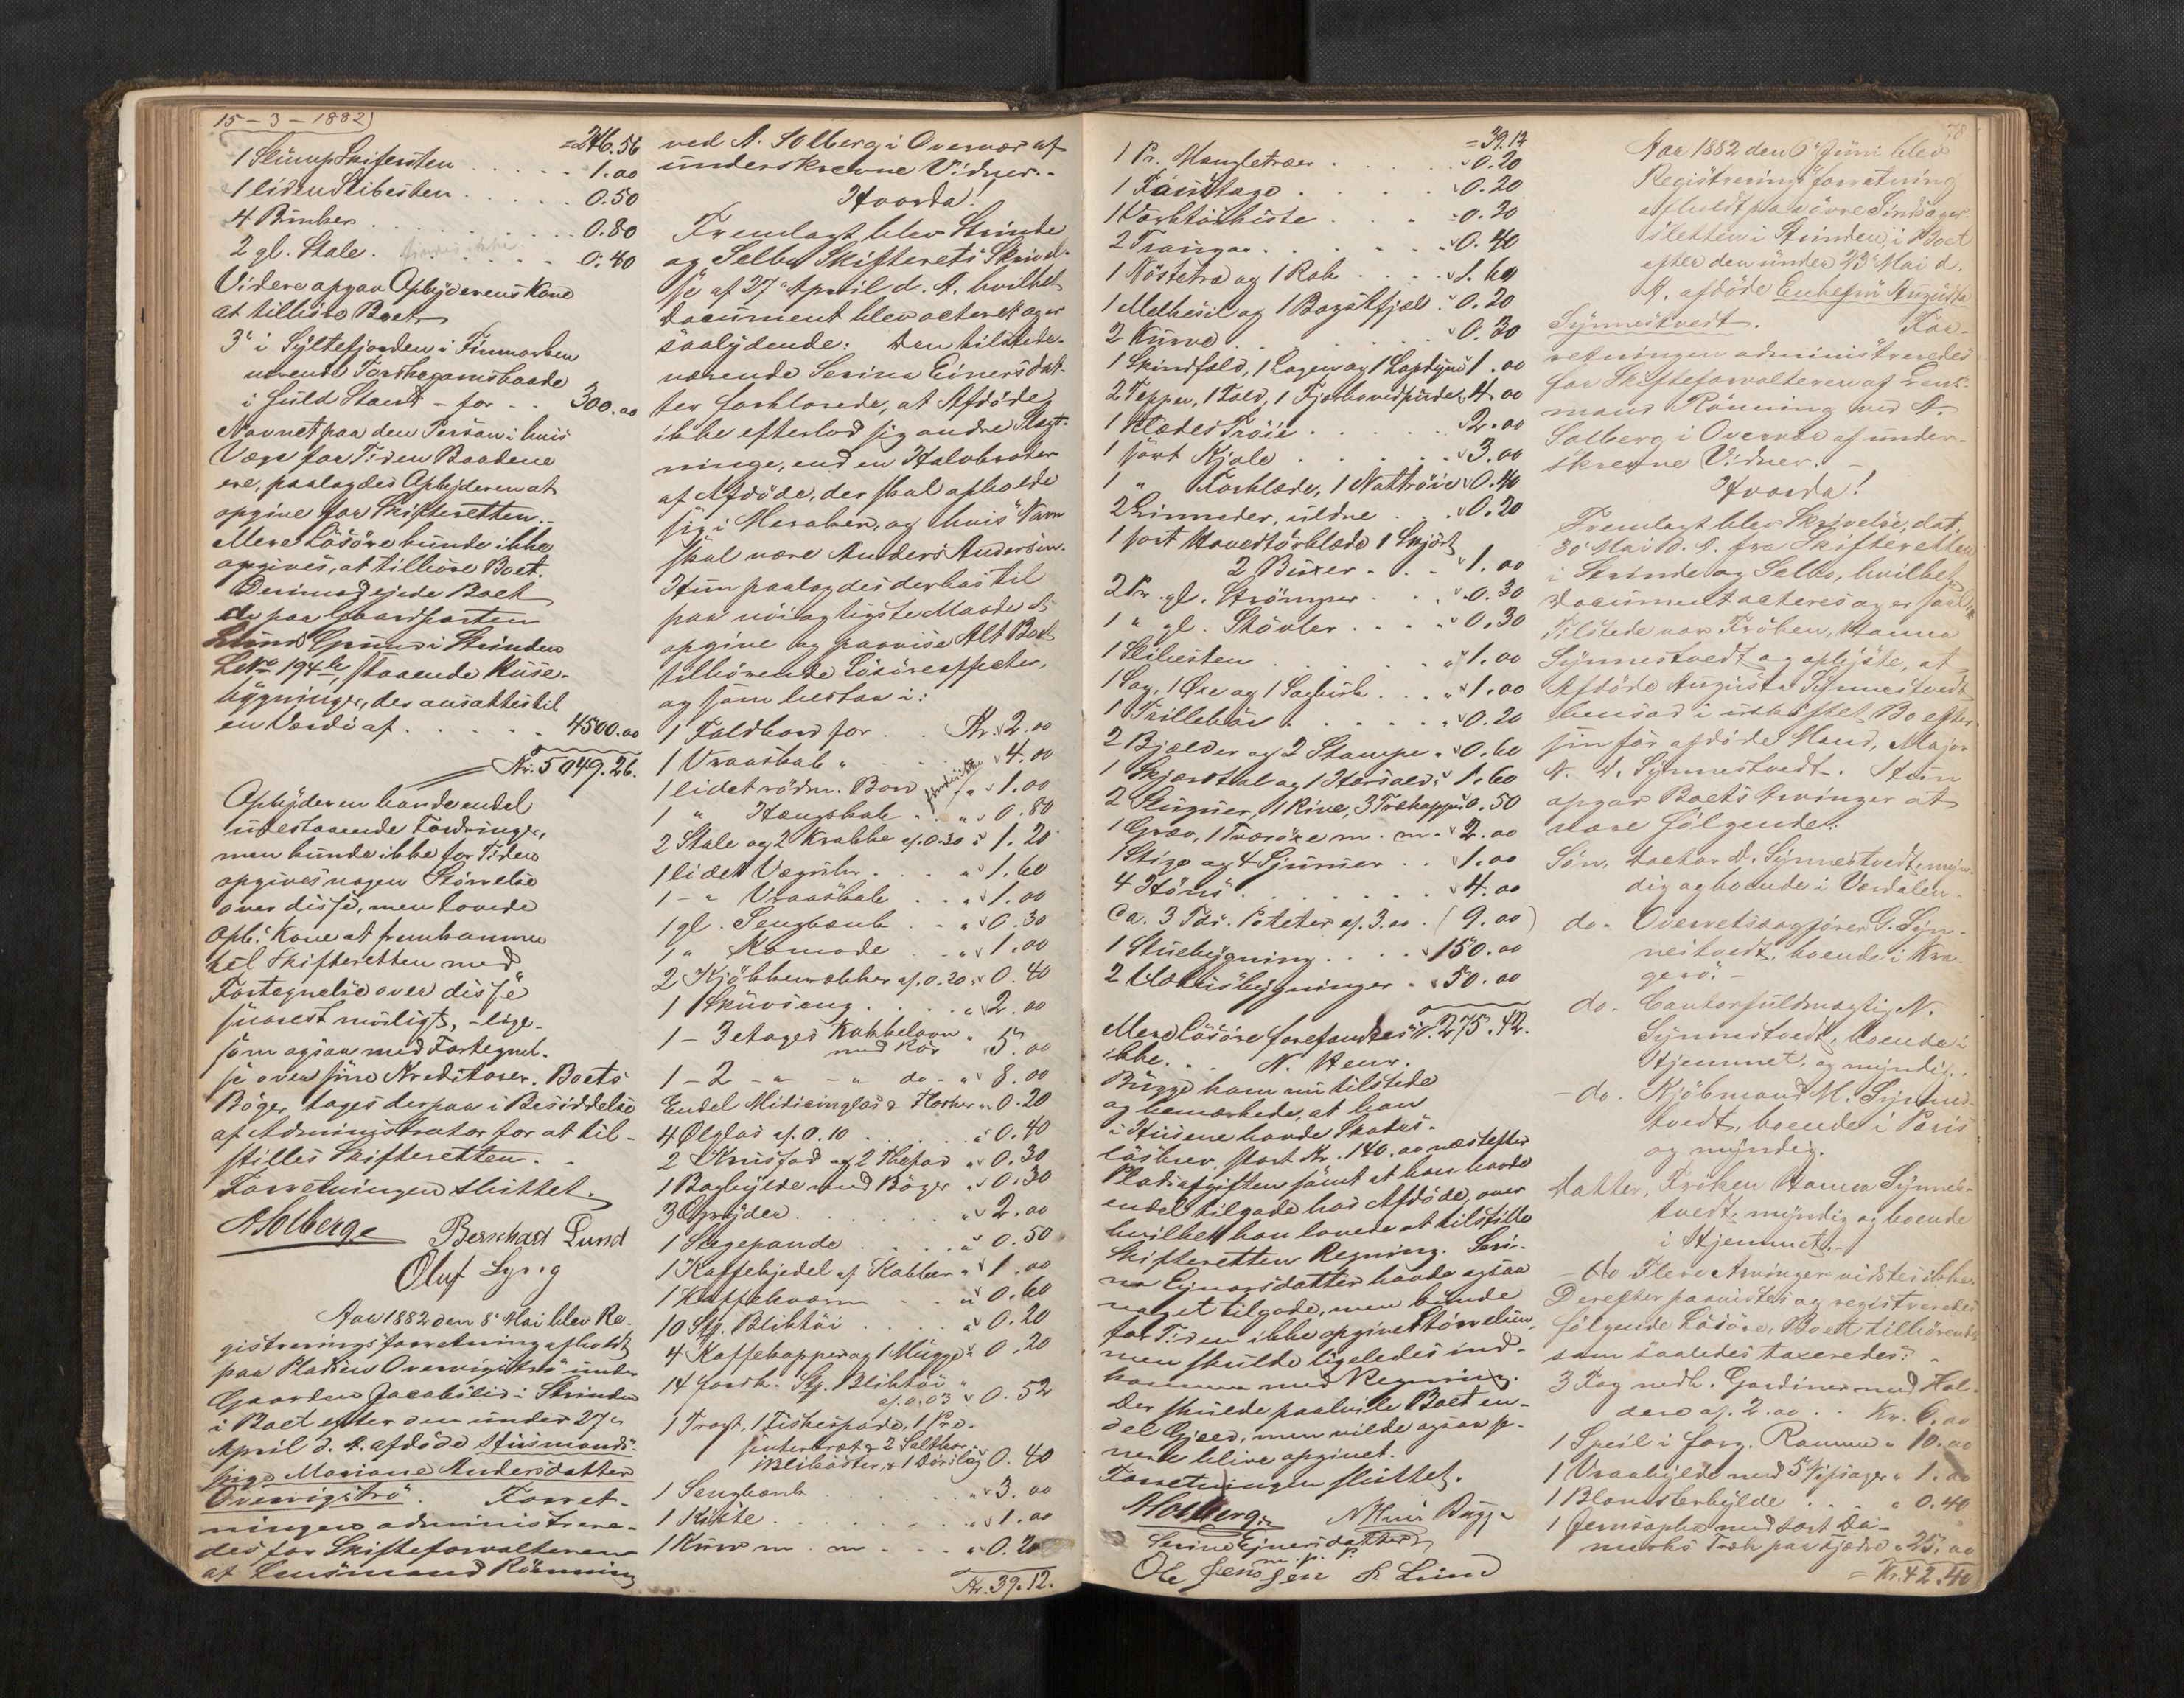 15-3-1882)
=246.56
1 Slump Skifersten . . . . . 1.00
1 liden Slibesten . . . . . 0.50
4 Bunker . . . . . 0.80
2 gl. Stole . findes ikke . . . 0.40
Videre opgav Opbyderens Kone
at tilhøre Boet
3de i Syltefjorden i Finmarken
værende Torskegarnsbaade
i fuld Stand - for - . 300.00
Navnet paa den Person i hvis
Værge for Tiden Baadene
ere, paalagdes Opbyderen at
opgive for Skifteretten. -
Mere Løsøre kunde ikke
opgives, at tilhøre Boet.
Derimod ejede Boet
de paa Gaardparten
Grund i Strinden
LNo 194 b, staaende Huse-
bygninger, der ansattes til
en Værdi af . . . . . 4500.00
Kr. 5049.26.
Opbyderen havde endel
udestaaende Fordringer,
men kunde ikke for Tiden
opgives nogen Størrelse
over disse, men lovede
Opb.s Kone at fremkomme
til Skifteretten med
Fortegnelse over disse
snarest muligt, - lige-
som ogsaa med Fortegnel-
se over sine Kreditorer. Boets
Bøger toges derpaa i Besiddelse
af Administrator for at til-
stilles Skifteretten. -
Forretningen sluttet.
A Solberg
Bernhard Lund
Oluf Lyng
Aar 1882 den 8de Mai blev Re-
gistreringsforretning afholdt
paa Pladsen Overvigstrø under
Gaarden Jacobsli i Strinden
i Boet efter den under 27de
April d. A. afdøde Husmands-
pige Mariane Andersdatter
Overvigstrø. Forret-
ningen administrere-
des for Skifteforvalteren
af Lensmand Rönning
ved A. Solberg i Overvær af
underskrevne Vidner. -
Hvorda!
Fremlagt blev Strinde
og Selbu Skifterets Skrivel-
se af 27de April d. A. hvilket
Document blev acteret og er
saalydende: Den tilstede-
værende Serina Einersdat-
ter forklarede, at Afdøde
ikke efterlod sig andre Slægt-
ninge, end en Halvbroder
af Afdøde, der skal opholde
sig i Meraker, og hvis Navn
skal være Anders Andersen.
Hun paalagdes derhos til
paa nøiagtigste Maade at
opgive og paavise Alt Boet
tilhørende Løsøreeffecter,
og som bestaa i:
1 Foldbord for . . Kr. 2.00
1 Vraaskab " . . 4.00
1 lidet rødm. Bord findes ikke " 1.00
1 " Hængskab . . " 0.80
2 Stole og 2 Krakke af 0.30 " 1.20
1 lidet Væguhr . . . " 1.60
1 - " Vraaskab . . " 1.00
1 gl. Sengbænk . . " 0.30
1 " Komode . . " 1.00
2 Kjøkkenrækker af 0.20 " 0.40
1 Skuvseng . . . . " 2.00
1 - 3 etages Kakkelovn
med Rør " 5.00
1 - 2 - " - " do - " 8.00
Endel Midicinglas & Flasker " 0.20
4 Ølglas af 0.10 . . . " 0.40
2 Krusfad og 2 Thefad " 0.30
1 Boghylde med Bøger " 0.30
3 Gryder . . . . . " 2.00
1 Stegepande . . . . " 0.50
1 Kaffekjedel af Kobber " 1.00
1 Kaffekværn . . " 0.60
10 Stk. Bliktøi . . . . " 0.20
4 Kaffekopper og 1 Mugge " 0.20
14 forsk. Stk. Bliktøi
af 0.03 " 0.52
1 Tragt, 1 Fiskespade, 1 Pre-
senterbret & 2 Saltkar,
1 Blikøster, & 1 Dørslag 0.40
1 Sengbænk . . . . " 3.00
1 Kiste . . . . . " 1.00
1 Kurv m. m - . . " 0.20
Kr. 39.12.
=39.12
1 Pr. Mangletræer . . . . " 0.20
1 Faustage . . . . " 0.20
1 Værktøikiste . . . " 0.30
2 Traugar . . . . . " 0.40
1 Nøstetræ og 1 Rok . . . " 1.60
1 Melkesil og 1 Bagstfjæl . " 0.20
2 Kurve . . . . . " 0.30
1 Skindfæld, 1 Lagen og 1 Lapdyne " 1.00
2 Tepper, 1 Fæld, 1 Fjærhovedpude " 4.00
1 Klædes Trøie . . . . . " 2.00
1 sort Kjole . . . . . " 3.00
1 " Forklæde, 1 Nattrøie " 0.40
2 Linneder, uldne . . " 0.20
1 sort Hovedtørklæde 1 Skjørt
2 Buxer - . . - " 1.00
2 Pr. gl. Strømper . . . " 0.30
1 " gl. Støvler . . . . " 0.30
1 Slibesten . . . . . " 1.00
1 Sag, 1 Øxe og 1 Sagbuk . . . " 1.00
1 Trillebør . . . . . " 0.20
2 Bjælder og 2 Stampe . " 0.60
1 Skjærstol og 1 Horsald " 1.60
2 Skugruer, 1 Rive, 3 Trækopper 0.50
1 Græv, 1 Tværøxe m. m. " 2.00
1 Stige og 4 Spunier . . " 1.00
4 Høns . . . . . . " 4.00
Ca. 3 Tdr. Poteter af 3.00 . (9.00)
1 Stuebygning . . . . " 150.00
2 Udhusbygninger - " 50.00
Mere Løsøre forefandtes Kr. 275.42.
ikke. . . N. Henr.
Bugge kom nu tilstede
og bemærkede, at han
i Husene havde Skades-
løsbrev stort Kr. 140.00 næstefter
Pladsafgiften samt at han havde
endel tilgode hos Afdøde, over
hvilket han lovede at tilstille
Skifteretten Regning. Seri-
na Ejnarsdatter havde ogsaa
noget tilgode, men kunde
for Tiden ikke opgive Størrelsen,
men skulde ligeledes ind-
komme med Regning.
Der skulde paahvile Boet en-
del Gjæld, men vilde ogsaa se-
nere blive opgivet.
Forretningen sluttet.
A Solberg
N Henr Bugge
Serina Ejnersdatter
m. p. P.
Ole Jensen
B Lund
78
Aar 1882 den 6te Juni blev
Registreringsforretning
afholdt paa øvre Tindsager-
sletten i Strinden, i Boet
efter den under 23de Mai d.
A. afdøde Enkefru Augusta
Synnestvedt. For-
retningen administreredes
for Skifteforvalteren af Lens-
mand Rönning ved A.
Solberg i Overvær af under-
skrevne Vidner. -
Hvorda!
Fremlagt blev Skrivelse, dat.
30 Mai d. A. fra Skifteretten
i Strinde og Selbu, hvilket
Document acteres og er saal:
Tilstede var Frøken, Hanna
Synnestvedt og oplyste, at
Afdøde Augusta Synnestvedt
hensad i uskiftet Bo efter
sin før afdøde Mand, Major
N. D. Synnestvedt. Hun
opgav Boets Arvinger at
være følgende:
Søn, Doctor D. Synnestvedt, myn-
dig og boende i Verdalen.
do. Overretssagfører G. Syn-
nestvedt, boende i Kra-
gerø. -
do. Contorfuldmægtig N.
Synnestvedt, boende i
Hjemmet, og myndig.
- do. Kjøbmand M. Synnes-
tvedt, boende i Paris
og myndig.
Datter, Frøken Hanna Synnes-
tvedt, myndig og boende
i Hjemmet. -
- do Flere Arvinger vidstes ikke.
Derefter paavistes og registreredes
følgende Løsøre, Boet tilhørende
som saaledes taxeredes: -
3 Fag nedh. Gardiner med Hol-
dere af. 2.00 . . Kr. 6.00
1 Speil i forg. Ramme " 10.00
1 Vraahylde med 5 Nipsager " 1.00
1 Blomsterhylde . . . " 0.40
1 Jernsopha med sort Da-
masks Træk paa fjædre " 25.00
= Kr. 42.40